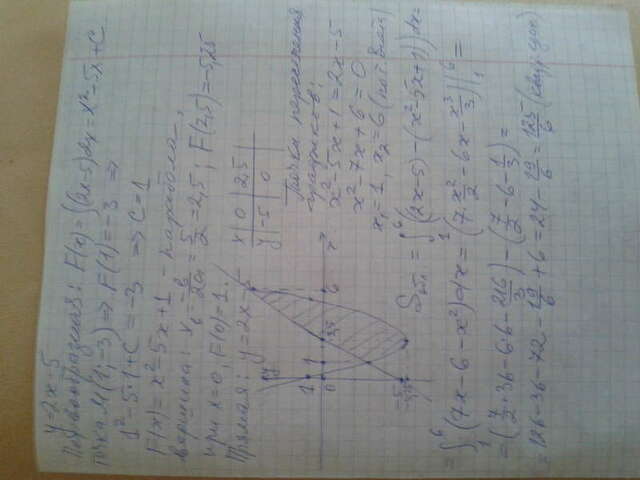 y=2x-5
Первообразная: F(x)=∫(2x-5)dx=x²-5x+C
точка M(1;-3) ⇒ F(1)=-3 ⇒
1²-5·1+C=-3 ⇒ C=1
F(x)=x²-5x+1 - парабола
вершина: x_в=-b/2a=5/2=2,5; F(2,5)=-5,25
при x=0, F(0)=1.
Прямая: y=2x-5
x | 0 | 2,5
y | -5 | 0
Точки пересечения
графиков:
x²-5x+1=2x-5
x²-7x+6=0
x₁=1, x₂=6
=∫₁⁶((2x-5)-(x²-5x+1))dx=
=∫₁⁶(7x-6-x²)dx=(7x²/2-6x-x³/3)|₁⁶=
=(7/2·36-6·6-216/3)-(7/2-6-1/3)=
=126-36-72-19/6+6=24-19/6=125/6
y
1
0
1
6
x
-5